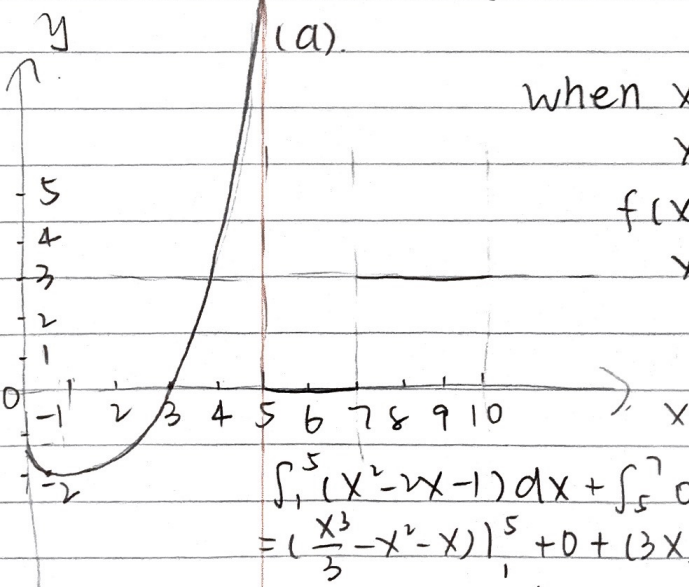 y
(a).
when x
f(x
5
4
3
2
1
0 -1 2 3 4 5 6 7 8 9 10 x
-2
∫₁⁵ (x²-2x-1)dx + ∫₅⁷ 0
= (x³/3 - x² - x)|₁⁵ + 0 + (3x